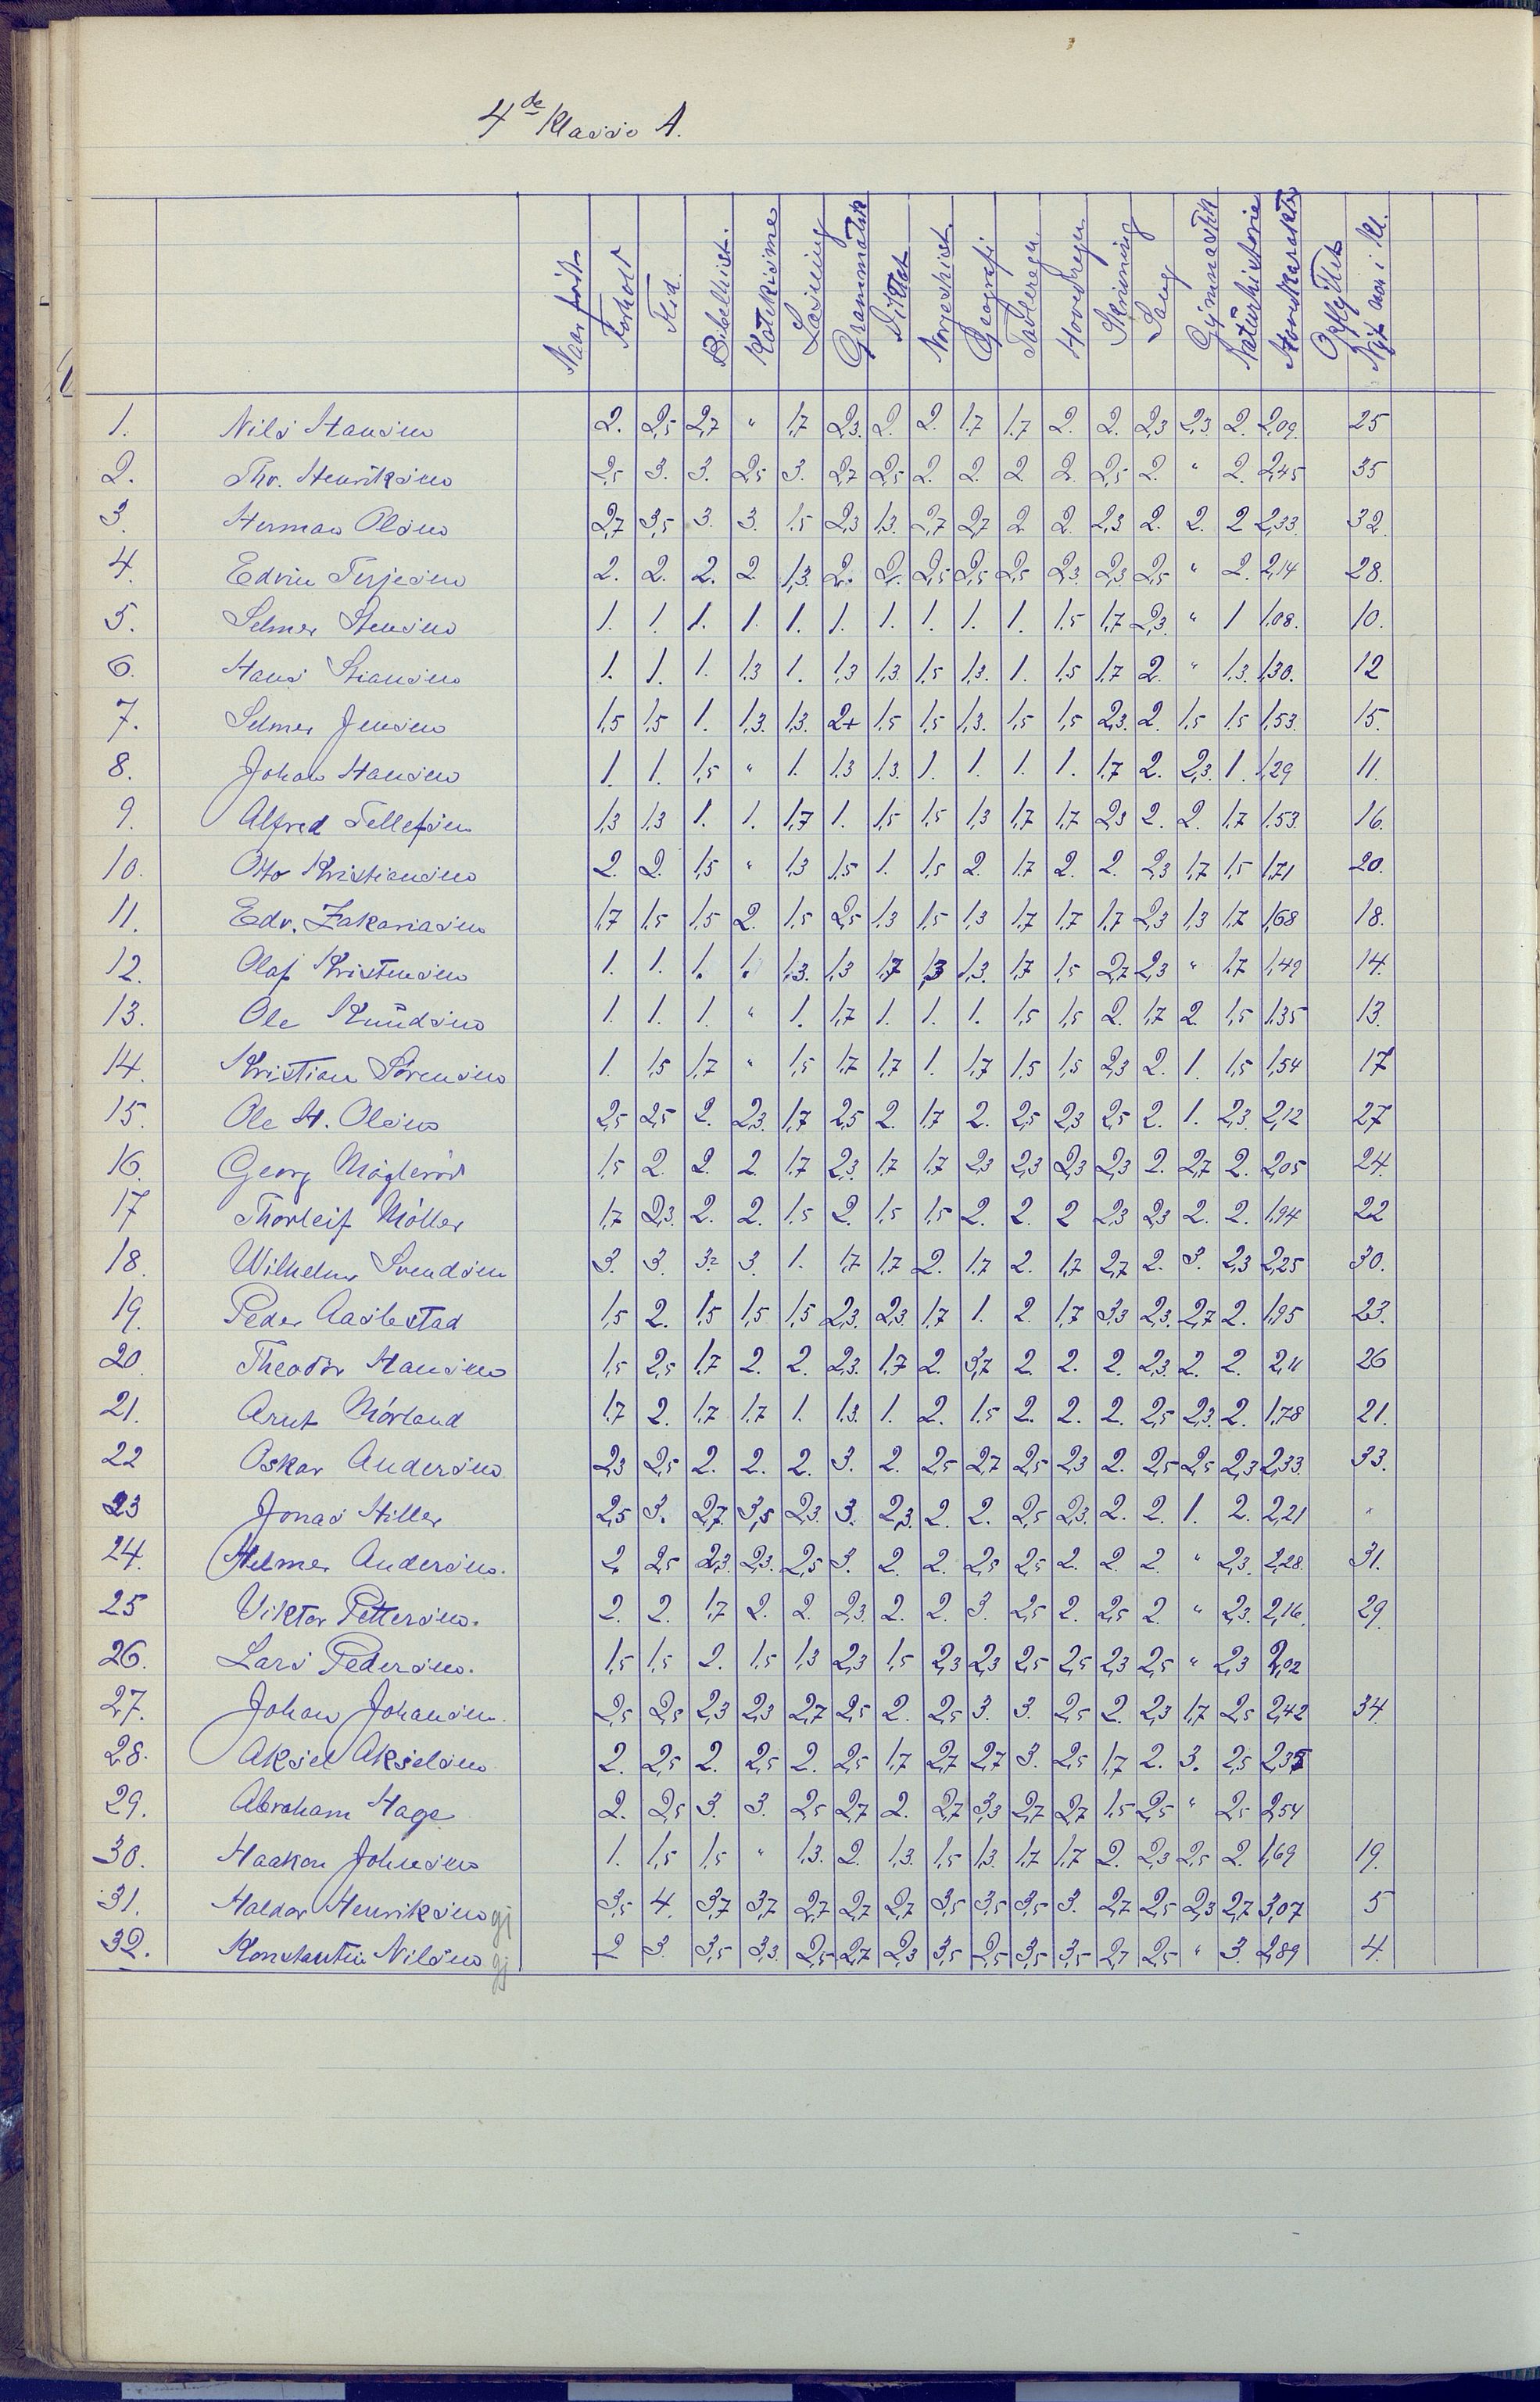 4de Klasse A.
Naar født Forhold Flid Bibelhist. Katekisme Læsning Grammatik Diktat Norgeshist. Geografi Tavleregn. Hovedregn. Skrivning Sang Gymnastik Naturhistorie Hovedkarakter Opflyttet Nyt No i Kl.
1. Nils Hansen 2. 2,5 2,7 " 1,7 2,3. 2. 2. 1,7 1,7 2. 2. 2,3 2,3. 2. 2,09. 25
2. Thv. Henriksen 2,5 3. 3. 2,5 3. 2,7 2,5 2. 2. 2 2. 2,5 2. " 2. 2,45 35
3. Herman Olsen 2,7 3,5 3. 3. 1,5 2,3 1,3. 2,7 2,7 2 2. 2,3 2. 2. 2 2,33. 32.
4. Edvin Terjesen 2. 2. 2. 2. 1,3. 2. 2. 2,5 2,5 2,5 2,3. 2,3 2,5 " 2. 2,14 28.
5. Selmer Stensen 1. 1. 1. 1. 1. 1. 1. 1. 1. 1. 1,5 1,7 2,3. " 1 1,08. 10.
6. Hans Stiansen 1. 1. 1. 1,3 1. 1,3 1,3. 1,5 1,3. 1. 1,5 1,7 2. " 1,3. 1,30. 12
7. Selmer Jensen 1,5 1,5 1. 1,3. 1,3. 2+ 1,5 1,5 1,3. 1,5 1,5 2,3. 2. 1,5 1,5 1,53. 15.
8. Johan Hansen 1. 1. 1,5 " 1. 1,3 1,3. 1. 1. 1. 1. 1,7 2. 2,3. 1. 1,29 11.
9. Alfred Tellefsen 1,3 1,3 1. 1. 1,7 1. 1,5 1,5 1,3 1,7 1,7 2,3 2. 2. 1,7 1,53. 16.
10. Otto Kristiansen 2. 2. 1,5 " 1,3 1,5 1. 1,5 2. 1,7 2. 2. 2,3 1,7 1,5 1,71 20.
11. Edv. Zakariasen 1,7 1,5 1,5 2. 1,5 2,5 1,3 1,5 1,3 1,7 1,7 1,7 2,3 1,3 1,7 1,68 18.
12. Olaf Kristensen 1. 1. 1. 1. 1,3. 1,3 1,7 1,3 1,3. 1,7 1,5 2,7 2,3 " 1,7 1,49 14.
13. Ole Knudsen 1. 1. 1. " 1. 1,7 1. 1. 1. 1,5 1,5 2. 1,7 2. 1,5 1,35 13.
14. Kristian Sørensen 1. 1,5 1,7 " 1,5 1,7 1,7 1. 1,7 1,5 1,5 2,3 2. 1. 1,5 1,54 17
15. Ole H. Olsen 2,5 2,5 2. 2,3. 1,7 2,5 2. 1,7 2. 2,5 2,3 2,5 2. 1. 2,3. 2,12 27
16. Georg 1,5 2. 2. 2. 1,7 2,3. 1,7 1,7 2,3 2,3 2,3 2,3 2. 2,7 2. 2,05 24.
17 Thorleif Møller 1,7 2,3. 2. 2. 1,5 2. 1,5 1,5 2. 2. 2 2,3 2,3 2. 2. 1,94 22
18. Wilhelm Svendsen 3. 3. 3. 3. 1. 1,7 1,7 2. 1,7 2. 1,7 2,7 2. 3. 2,3 2,25 30.
19. Peder Aaslestad 1,5 2. 1,5 1,5 1,5 2,3. 2,3. 1,7 1. 2. 1,7 3,3 2,3. 2,7 2. 1,95 23.
20. Theodor Hansen 1,5 2,5 1,7 2. 2. 2,3. 1,7 2. 3,7 2. 2. 2. 2,3. 2. 2. 2,11 26
21. Arnt Mørland 1,7 2. 1,7 1,7 1. 1,3. 1. 2. 1,5 2. 2. 2. 2,5 2,3. 2. 1,78 21.
22 Oskar Andersen 2,3 2,5 2. 2. 2. 3. 2. 2,5 2,7 2,5 2,3 2. 2,5 2,5 2,3 2,33. 33.
23 Jonas Hiller 2,5 3. 2,7. 3,5 2,3. 3. 2,3. 2. 2. 2,5 2,3. 2. 2. 1. 2. 2,21 "
24. Helmer Andersen. 2. 2,5 2,3. 2,3. 2,5 3. 2. 2. 2,5 2,5 2. 2. 2. " 2,3. 2,28. 31.
25 Viktor Pettersen. 2. 2. 1,7 2. 2. 2,3. 2. 2. 3. 2,5 2. 2,5 2. " 2,3. 2,16. 29.
26. Lars Pedersen. 1,5 1,5 2. 1,5 1,3 2,3 1,5 2,3 2,3 2,5 2,5 2,3 2,5 " 2,3 2,02
27. Johan Johansen. 2,5 2,5 2,3 2,3 2,7 2,5 2. 2,5 3. 3. 2,5 2. 2,3 1,7 2,5 2,42 34.
28. Aksel Akselsen 2. 2,5 2. 2,5 2. 2,5 1,7 2,7 2,7 3. 2,5 1,7 2. 3. 2,5 2,35
29. Abraham Hage 2. 2,5 3. 3. 2,5 2,7 2. 2,7 3,3 2,7 2,7 1,5 2,5 " 2,5 2,54
30. Haakon Johnsen 1. 1,5 1,5 " 1,3. 2. 1,3. 1,5 1,3. 1,7 1,7 2. 2,3 2,5 2. 1,69 19.
31. Haldor Henriksen gj 3,5 4. 3,7 3,7 2,7 2,7 2,7 3,5 3,5 3,5 3. 2,7 2,5 2,3 2,7 3,07 5
32. Konstantin Nilsen gj 2 3. 3,5 3,3. 2,5 2,7 2,3 3,5 2,5 3,5 3,5 2,7 2,5 " 3. 2,89 4.